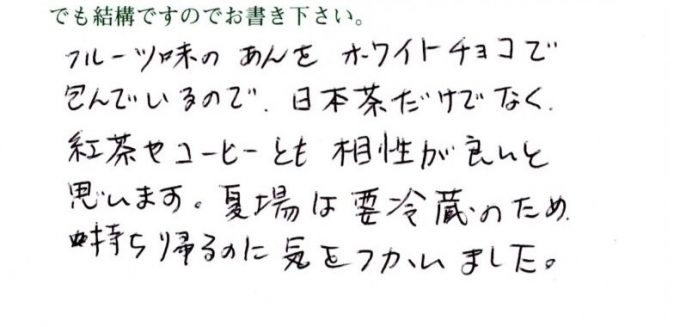 でも結構ですのでお書き下さい。
フルーツ味のあんをホワイトチョコで
包んでいるので、日本茶だけでなく、
紅茶やコーヒーとも相性が良いと
思います。夏場は要冷蔵のため、
持ち帰るのに気をつかいました。